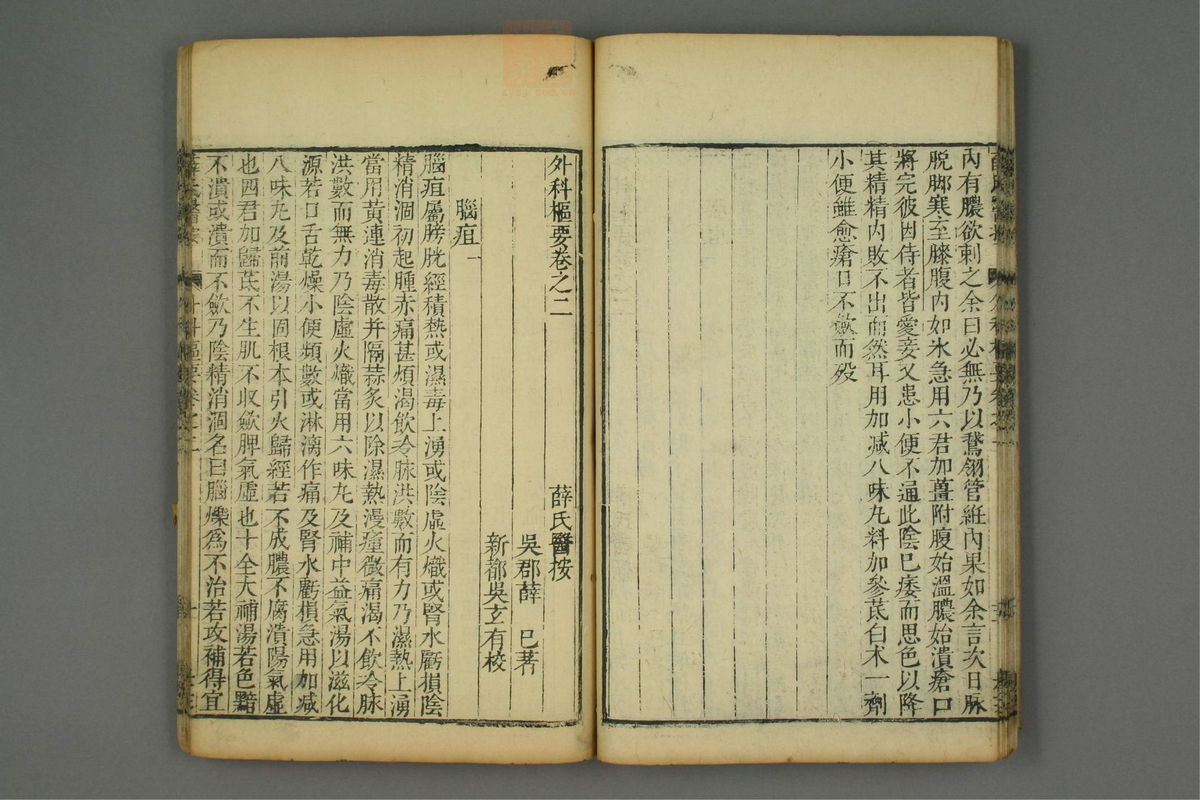 內有膿欲刺之余曰必無乃以鵞翎管絍內果如余言次日脉
脱脚寒至膝腹內如氷急用六君加薑附腹始溫膿始潰瘡口
將完彼因侍者皆愛妾又患小便不通此陰已痿而思色以降
其精精內敗不出而然耳用加减八味丸料加參芪白术一劑
小便雖愈瘡口不斂而殁
外科樞要卷之二 薛氏醫按
吳郡薛 已著
新都吳玄有校
腦疽 一
腦疽屬膀胱經積熱或濕毒上湧或陰虛火熾或腎水虧損陰
精消涸初起腫赤痛甚煩渴飲冷脉洪數而有力乃濕熱上湧
當用黃連消毒散并隔蒜炙以除濕熱漫瘇微痛渴不飲冷脉
洪數而無力乃陰虛火熾當用六味丸及補中益氣湯以滋化
源若口舌乾燥小便頻數或淋漓作痛及腎水虧損急用加减
八味丸及前湯以固根本引火歸經若不成膿不腐潰陽氣虛
也四君加歸芪不生肌不收斂脾氣虛也十全大補湯若色黯
不潰或潰而不斂乃陰精消涸名曰腦爍為不治若攻補得宜
薛氏醫按 外科樞要卷之二 一